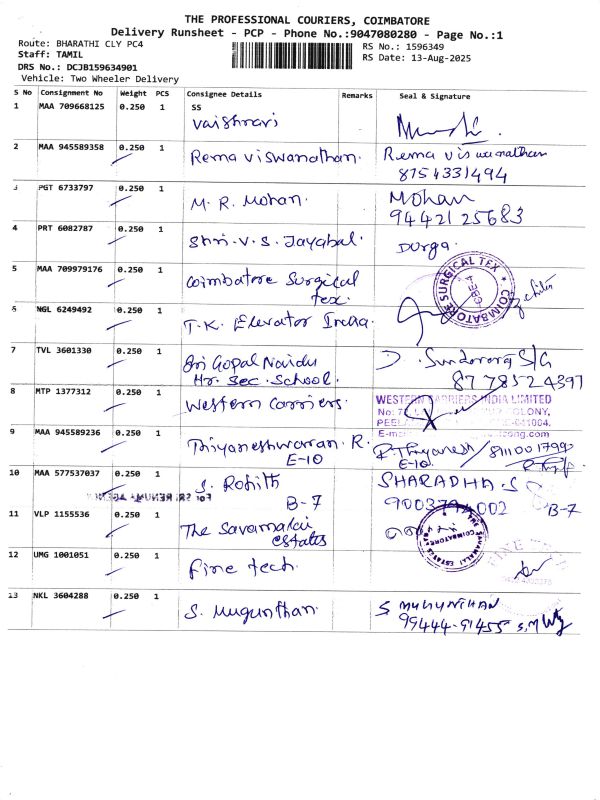 THE PROFESSIONAL COURIERS, COIMBATORE
Delivery Runsheet - PCP - Phone No.:9047080280 - Page No.:1
Route: BHARATHI CLY PC4
RS No.: 1596349
Staff: TAMIL
RS Date: 13-Aug-2025
DRS No.: DCJB159634901
Vehicle: Two Wheeler Delivery
S No Consignment No Weight PCS Consignee Details Remarks Seal & Signature
1 MAA 709668125 0.250 1 SS
Vaishnavi
2 MAA 945589358 0.250 1 Rema Viswanathan. Rema Viswanathan
8754331494
3 PGT 6733797 0.250 1 M. R. Mohan. Mohan
9442125683
4 PRT 6082787 0.250 1 Shri. V. S. Jayabal. Durga.
5 MAA 709979176 0.250 1 Coimbatore Surgical
Tex.
SURGICAL TEX * COIMBATORE
6 NGL 6249492 0.250 1 T.K. Elevator India.
7 TVL 3601330 0.250 1 Sri Gopal Naidu
Hr. Sec. School.
D. Sundararaj S/G
8778524397
8 MTP 1377312 0.250 1 Western Carriers.
WESTERN CARRIERS INDIA LIMITED
COLONY,
9 MAA 945589236 0.250 1 Thiyaneshwaran. R.
E-10
R. Thiyanesh / 8110017990
E-10
10 MAA 577537037 0.250 1 S. Rohith
B-7
SHARADHA. S
B-7
11 VLP 1155536 0.250 1 The Savamalai
estates
12 UMG 1001051 0.250 1 Fine tech.
13 NKL 3604288 0.250 1 S. Mugunthan. S MUGUNTHAN
99444-91455